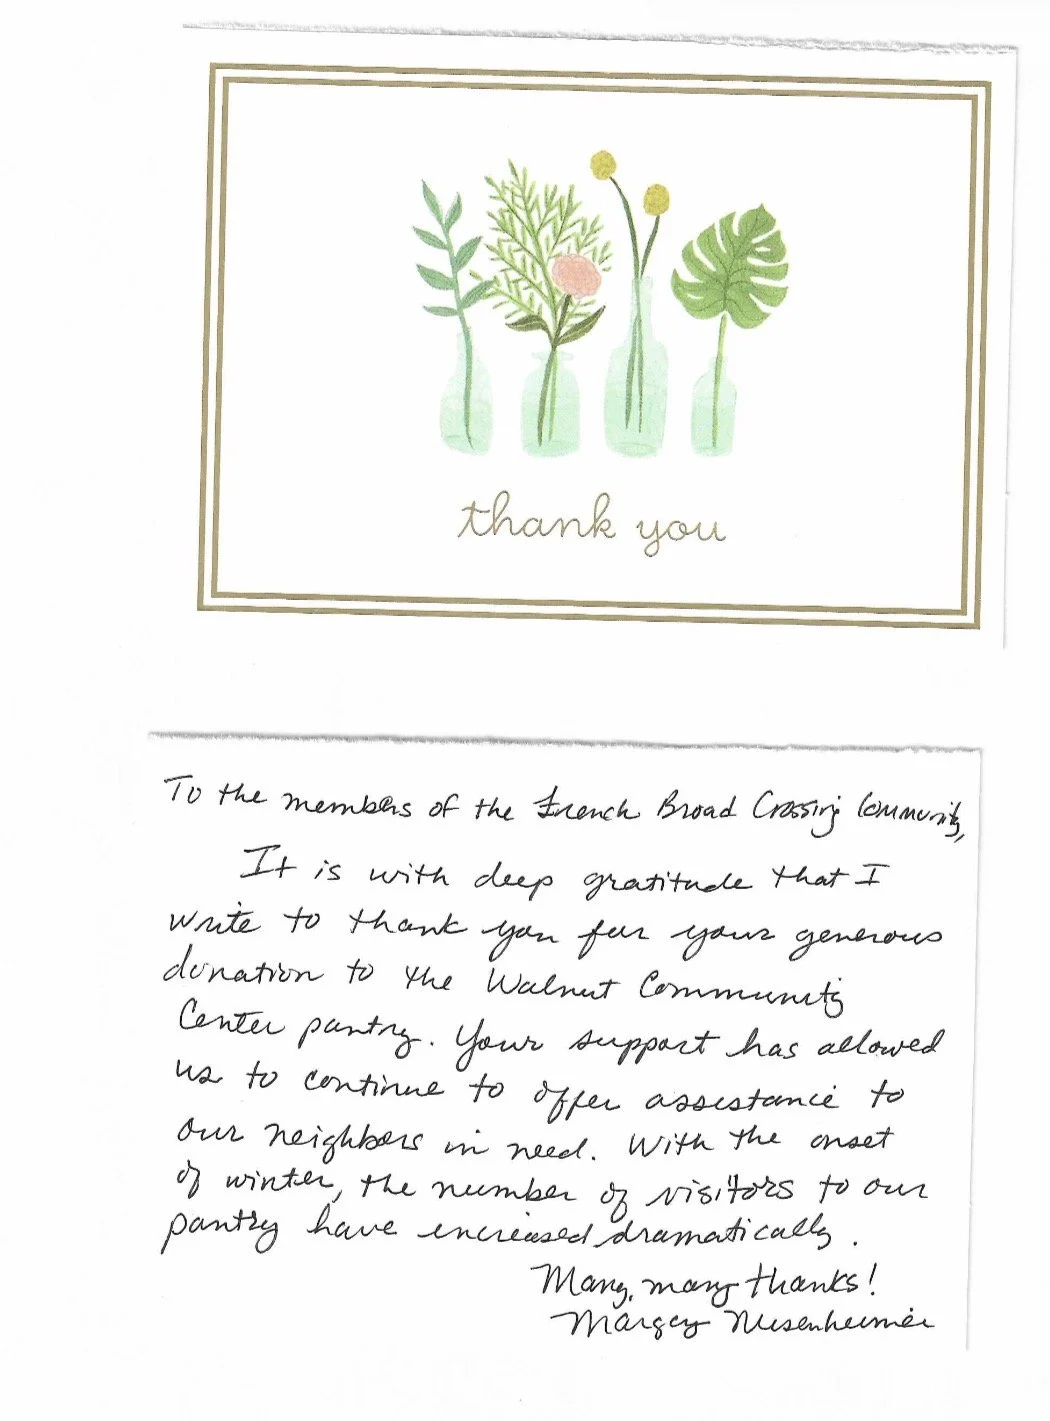 thank you
To the members of the French Broad Crossing Community,
It is with deep gratitude that I
write to thank you for your generous
donation to the Walnut Community
Center pantry. Your support has allowed
us to continue to offer assistance to
our neighbors in need. With the onset
of winter, the number of visitors to our
pantry have increased dramatically.
Many, many thanks!
Margey